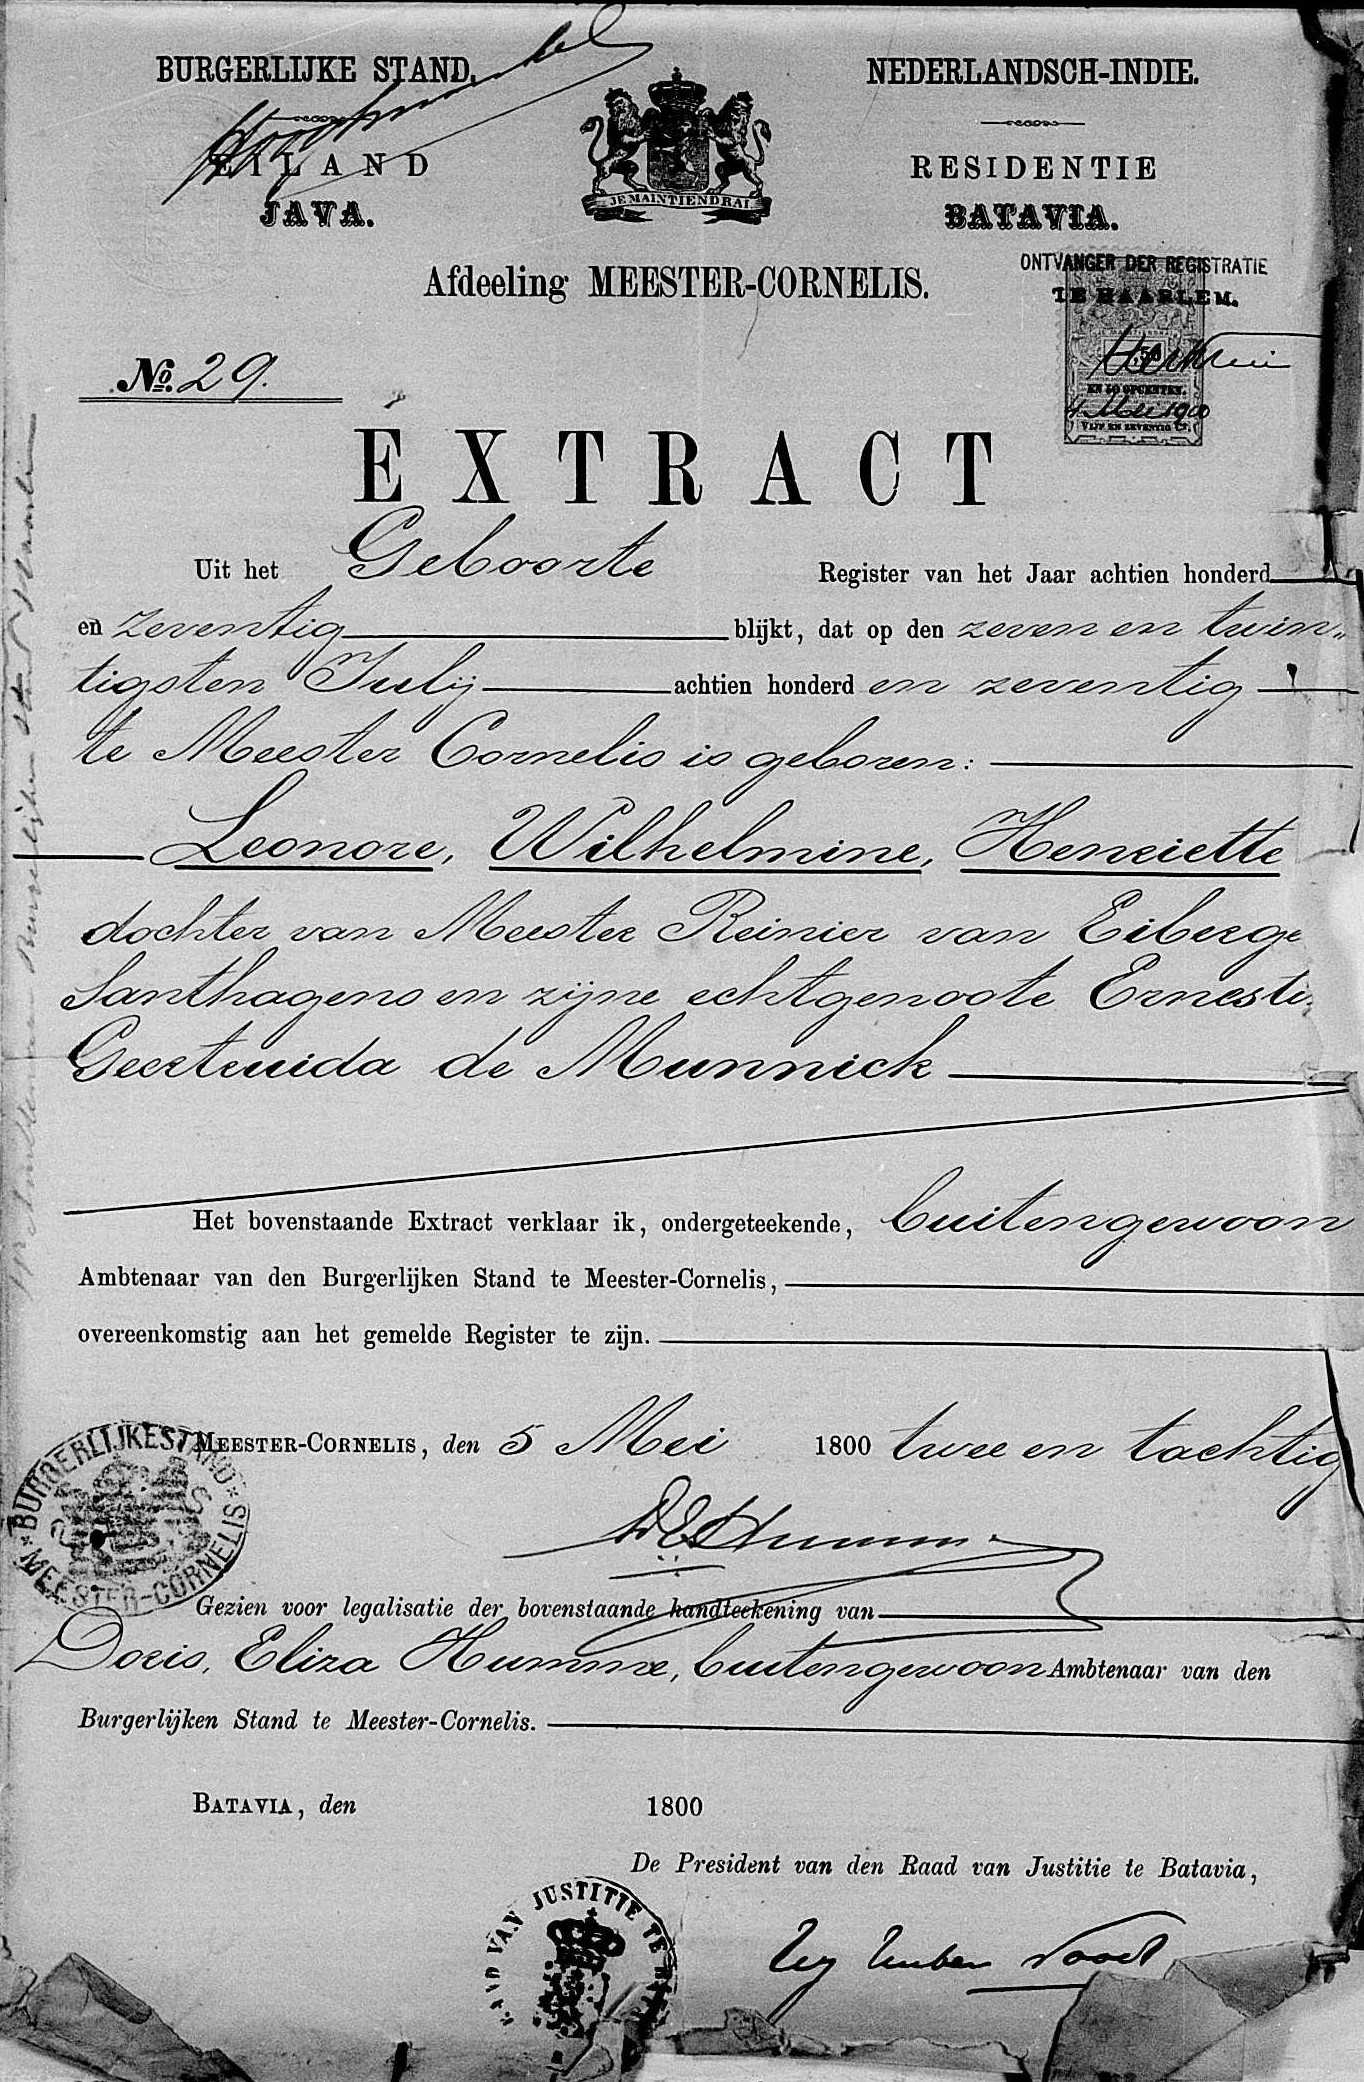 BURGERLIJKE STAND,
EILAND
JAVA.
JE MAINTIENDRAI
NEDERLANDSCH-INDIE.
RESIDENTIE
BATAVIA.
Afdeeling MEESTER-CORNELIS.
ONTVANGER DER REGISTRATIE
TE HAARLEM.
EN 50 OPCENTEN.
4 Mei 1900
VIJF EN ZEVENTIG Ct.
No. 29.
EXTRACT
Uit het Geboorte Register van het Jaar achtien honderd
en zeventig blijkt, dat op den zeven en twin„
tigsten Julij achtien honderd en zeventig
te Meester Cornelis is geboren:
Leonore, Wilhelmine, Henriette
dochter van Meester Reinier van Eiberge
Santhagens en zijne echtgenoote Ernesti
Geertruida de Munnick
Het bovenstaande Extract verklaar ik, ondergeteekende, buitengewoon
Ambtenaar van den Burgerlijken Stand te Meester-Cornelis,
overeenkomstig aan het gemelde Register te zijn.
MEESTER-CORNELIS, den 5 Mei 1800 twee en tachtig
BURGERLIJKE STAND
MEESTER-CORNELIS
DEHumme
Gezien voor legalisatie der bovenstaande handteekening van
Doris, Eliza Humme, buitengewoon Ambtenaar van den
Burgerlijken Stand te Meester-Cornelis.
BATAVIA, den 1800
De President van den Raad van Justitie te Batavia,
RAAD VAN JUSTITIE TE